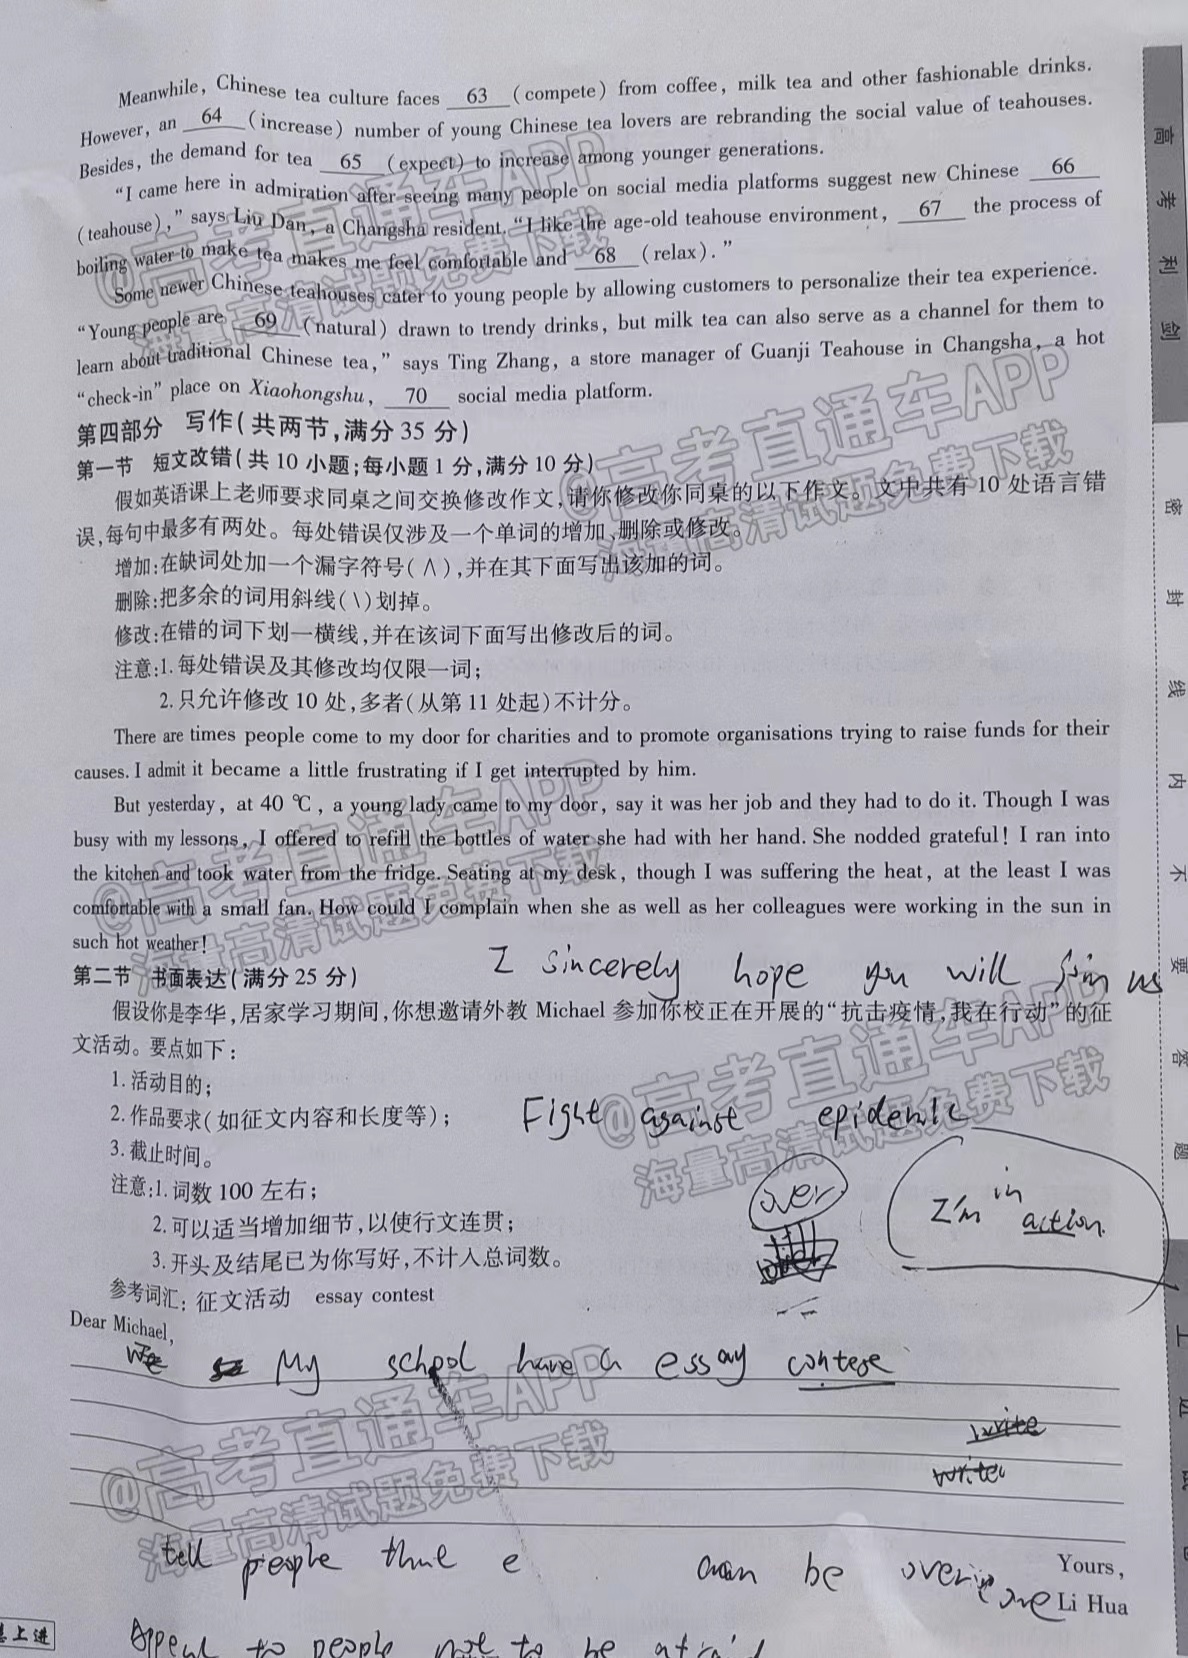 Meanwhile, Chinese tea culture faces 63 (compete) from coffee, milk tea and other fashionable drinks.
However, an 64 (increase) number of young Chinese tea lovers are rebranding the social value of teahouses.
Besides, the demand for tea 65 (expect) to increase among younger generations.
“I came here in admiration after seeing many people on social media platforms suggest new Chinese 66
(teahouse),” says Liu Dan, a Changsha resident. “I like the age-old teahouse environment, 67 the process of
boiling water to make tea makes me feel comfortable and 68 (relax).”
Some newer Chinese teahouses cater to young people by allowing customers to personalize their tea experience.
“Young people are 69 (natural) drawn to trendy drinks, but milk tea can also serve as a channel for them to
learn about traditional Chinese tea,” says Ting Zhang, a store manager of Guanji Teahouse in Changsha, a hot
“check-in” place on Xiaohongshu, 70 social media platform.
第四部分 写作(共两节,满分35分)
第一节 短文改错(共10小题;每小题1分,满分10分)
假如英语课上老师要求同桌之间交换修改作文,请你修改你同桌的以下作文。文中共有10处语言错
误,每句中最多有两处。每处错误仅涉及一个单词的增加、删除或修改。
增加:在缺词处加一个漏字符号(∧),并在其下面写出该加的词。
删除:把多余的词用斜线(\)划掉。
修改:在错的词下划一横线,并在该词下面写出修改后的词。
注意:1.每处错误及其修改均仅限一词;
2.只允许修改10处,多者(从第11处起)不计分。
There are times people come to my door for charities and to promote organisations trying to raise funds for their
causes. I admit it became a little frustrating if I get interrupted by him.
But yesterday, at 40 ℃, a young lady came to my door, say it was her job and they had to do it. Though I was
busy with my lessons, I offered to refill the bottles of water she had with her hand. She nodded grateful! I ran into
the kitchen and took water from the fridge. Seating at my desk, though I was suffering the heat, at the least I was
comfortable with a small fan. How could I complain when she as well as her colleagues were working in the sun in
such hot weather!
I sincerely hope you will join us
第二节 书面表达(满分25分)
假设你是李华,居家学习期间,你想邀请外教 Michael 参加你校正在开展的“抗击疫情,我在行动”的征
文活动。要点如下:
1.活动目的;
2.作品要求(如征文内容和长度等);
Fight against epidemic
3.截止时间。
注意:1.词数100左右;
over
I'm in action.
2.可以适当增加细节,以使行文连贯;
3.开头及结尾已为你写好,不计入总词数。
参考词汇:征文活动 essay contest
Dear Michael,
My school have a essay contese
write
tell people that e can be over
Yours,
Li Hua
Appeal to people not to be afraid
高考利剑
密封线内不要答题
@高考直通车APP
海量高清试题免费下载
@高考直通车APP
海量高清试题免费下载
@高考直通车APP
海量高清试题免费下载
@高考直通车APP
海量高清试题免费下载
@高考直通车APP
海量高清试题免费下载
上进